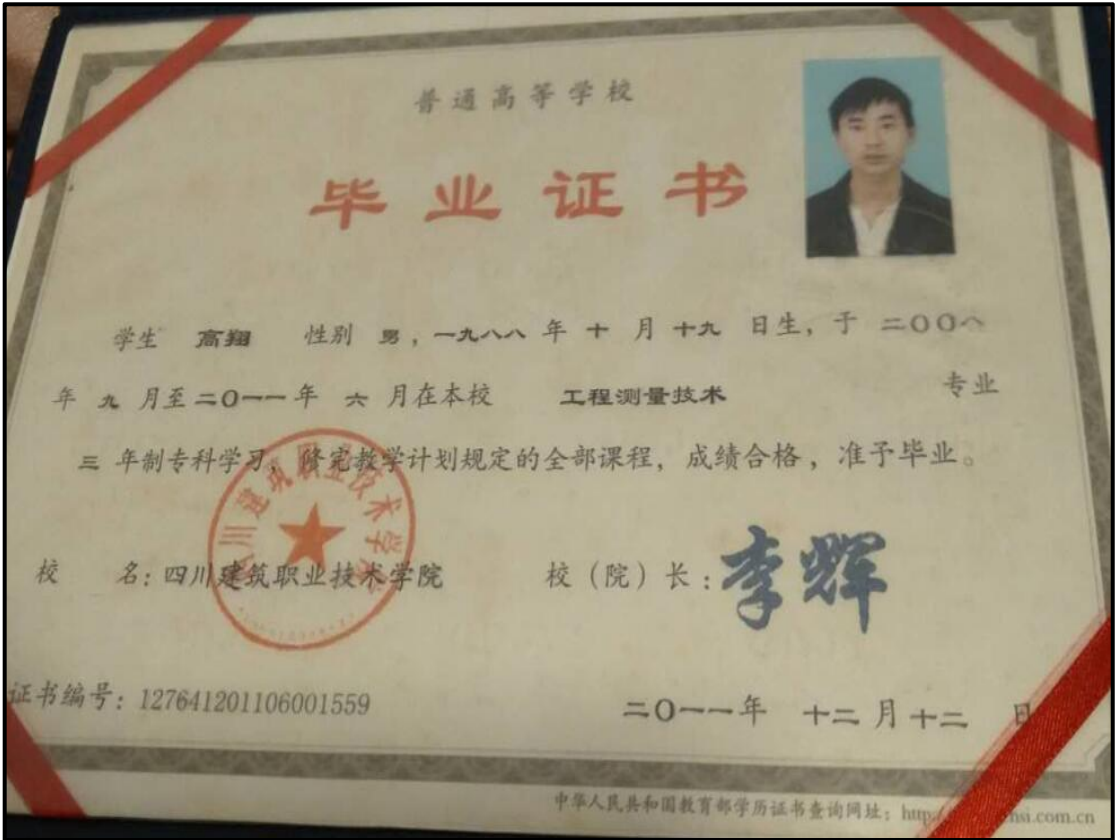 普通高等学校
毕业证书
学生 高翔 性别 男，一九八八 年 十 月 十九 日生，于 二〇〇八
年 九 月至二〇一一年 六 月在本校 工程测量技术 专业
三 年制专科学习，修完教学计划规定的全部课程，成绩合格，准予毕业。
四川建筑职业技术学院
校 名：四川建筑职业技术学院 校（院）长：李辉
证书编号：127641201106001559
二〇一一年 十二 月十二 日
中华人民共和国教育部学历证书查询网址：http hsi.com.cn